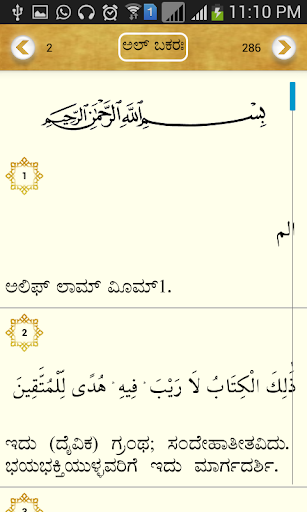 11:10 PM
2 ಅಲ್ ಬಕರಃ 286
بِسْمِ اللَّهِ الرَّحْمَٰنِ الرَّحِيمِ
1
الم
ಅಲಿಫ್ ಲಾಮ್ ಮೀಮ್1.
2
ذَٰلِكَ الْكِتَابُ لَا رَيْبَ ۛ فِيهِ ۛ هُدًى لِّلْمُتَّقِينَ
ಇದು (ದೈವಿಕ) ಗ್ರಂಥ; ಸಂದೇಹಾತೀತವಿದು.
ಭಯಭಕ್ತಿಯುಳ್ಳವರಿಗೆ ಇದು ಮಾರ್ಗದರ್ಶಿ.
3